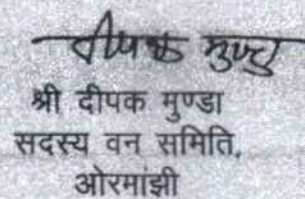 दीपक मुण्डा
श्री दीपक मुण्डा
सदस्य वन समिति,
ओरमांझी